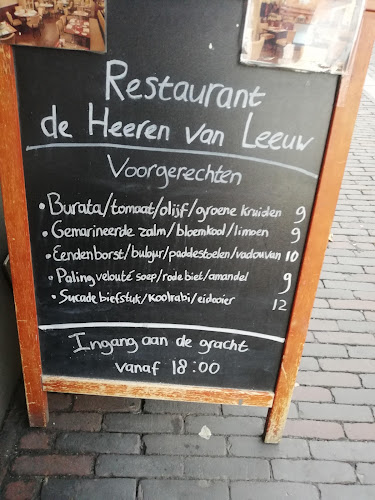 Restaurant
de Heeren van Leeuw
Voorgerechten
• Burata/tomaat/olijf/groene kruiden 9
• Gemarineerde zalm/bloemkool/limoen 9
• Eendenborst/bulgur/paddestoelen/vadouvan 10
• Paling velouté soep/rode biet/amandel 9
• Sucade biefstuk/Koolrabi/eidooier 12
Ingang aan de gracht
vanaf 18:00